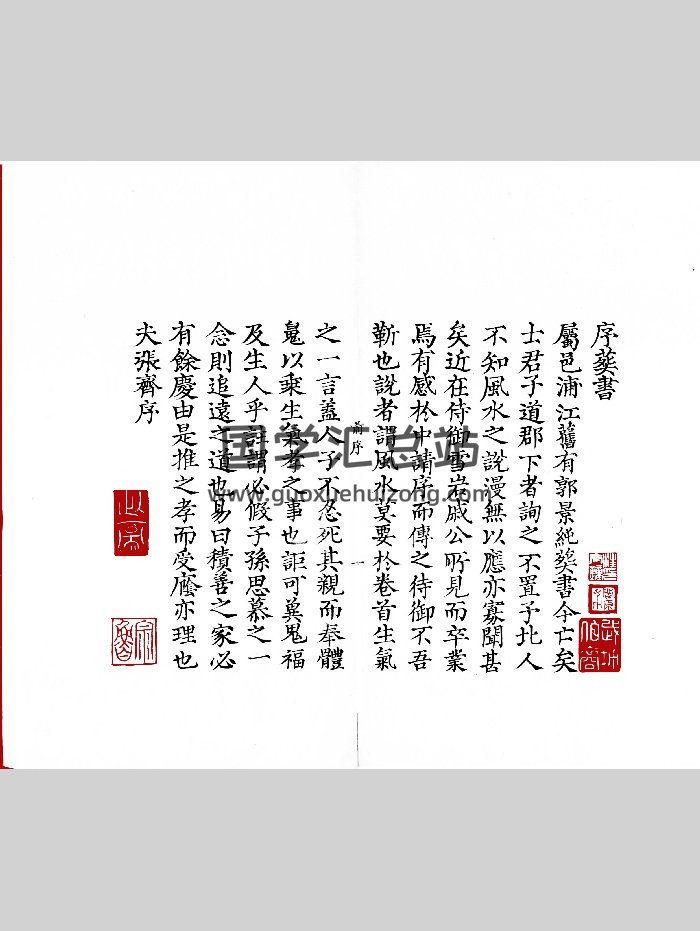 序葬書
屬邑浦江舊有郭景純葬書今亡矣
士君子道郡下者詢之不置予北人
不知風水之說漫無以應亦寡聞甚
矣近在侍御雪崖戚公所見而卒業
焉有感於中請序而傳之侍御不吾
靳也說者謂風水莫要於卷首生氣
前序
一
之一言蓋人子不忍死其親而奉體
魄以乘生氣孝之事也詎可冀鬼福
及生人乎註謂必假子孫思慕之一
念則追遠之道也易曰積善之家必
有餘慶由是推之孝而受廕亦理也
夫張齊序
国学汇总站
www.guoxuehuizong.com